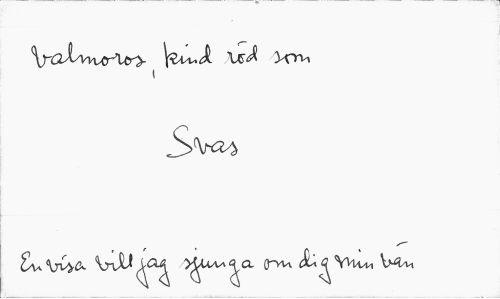 Valmoros, kind röd som
Svas
En visa vill jag sjunga om dig min vän